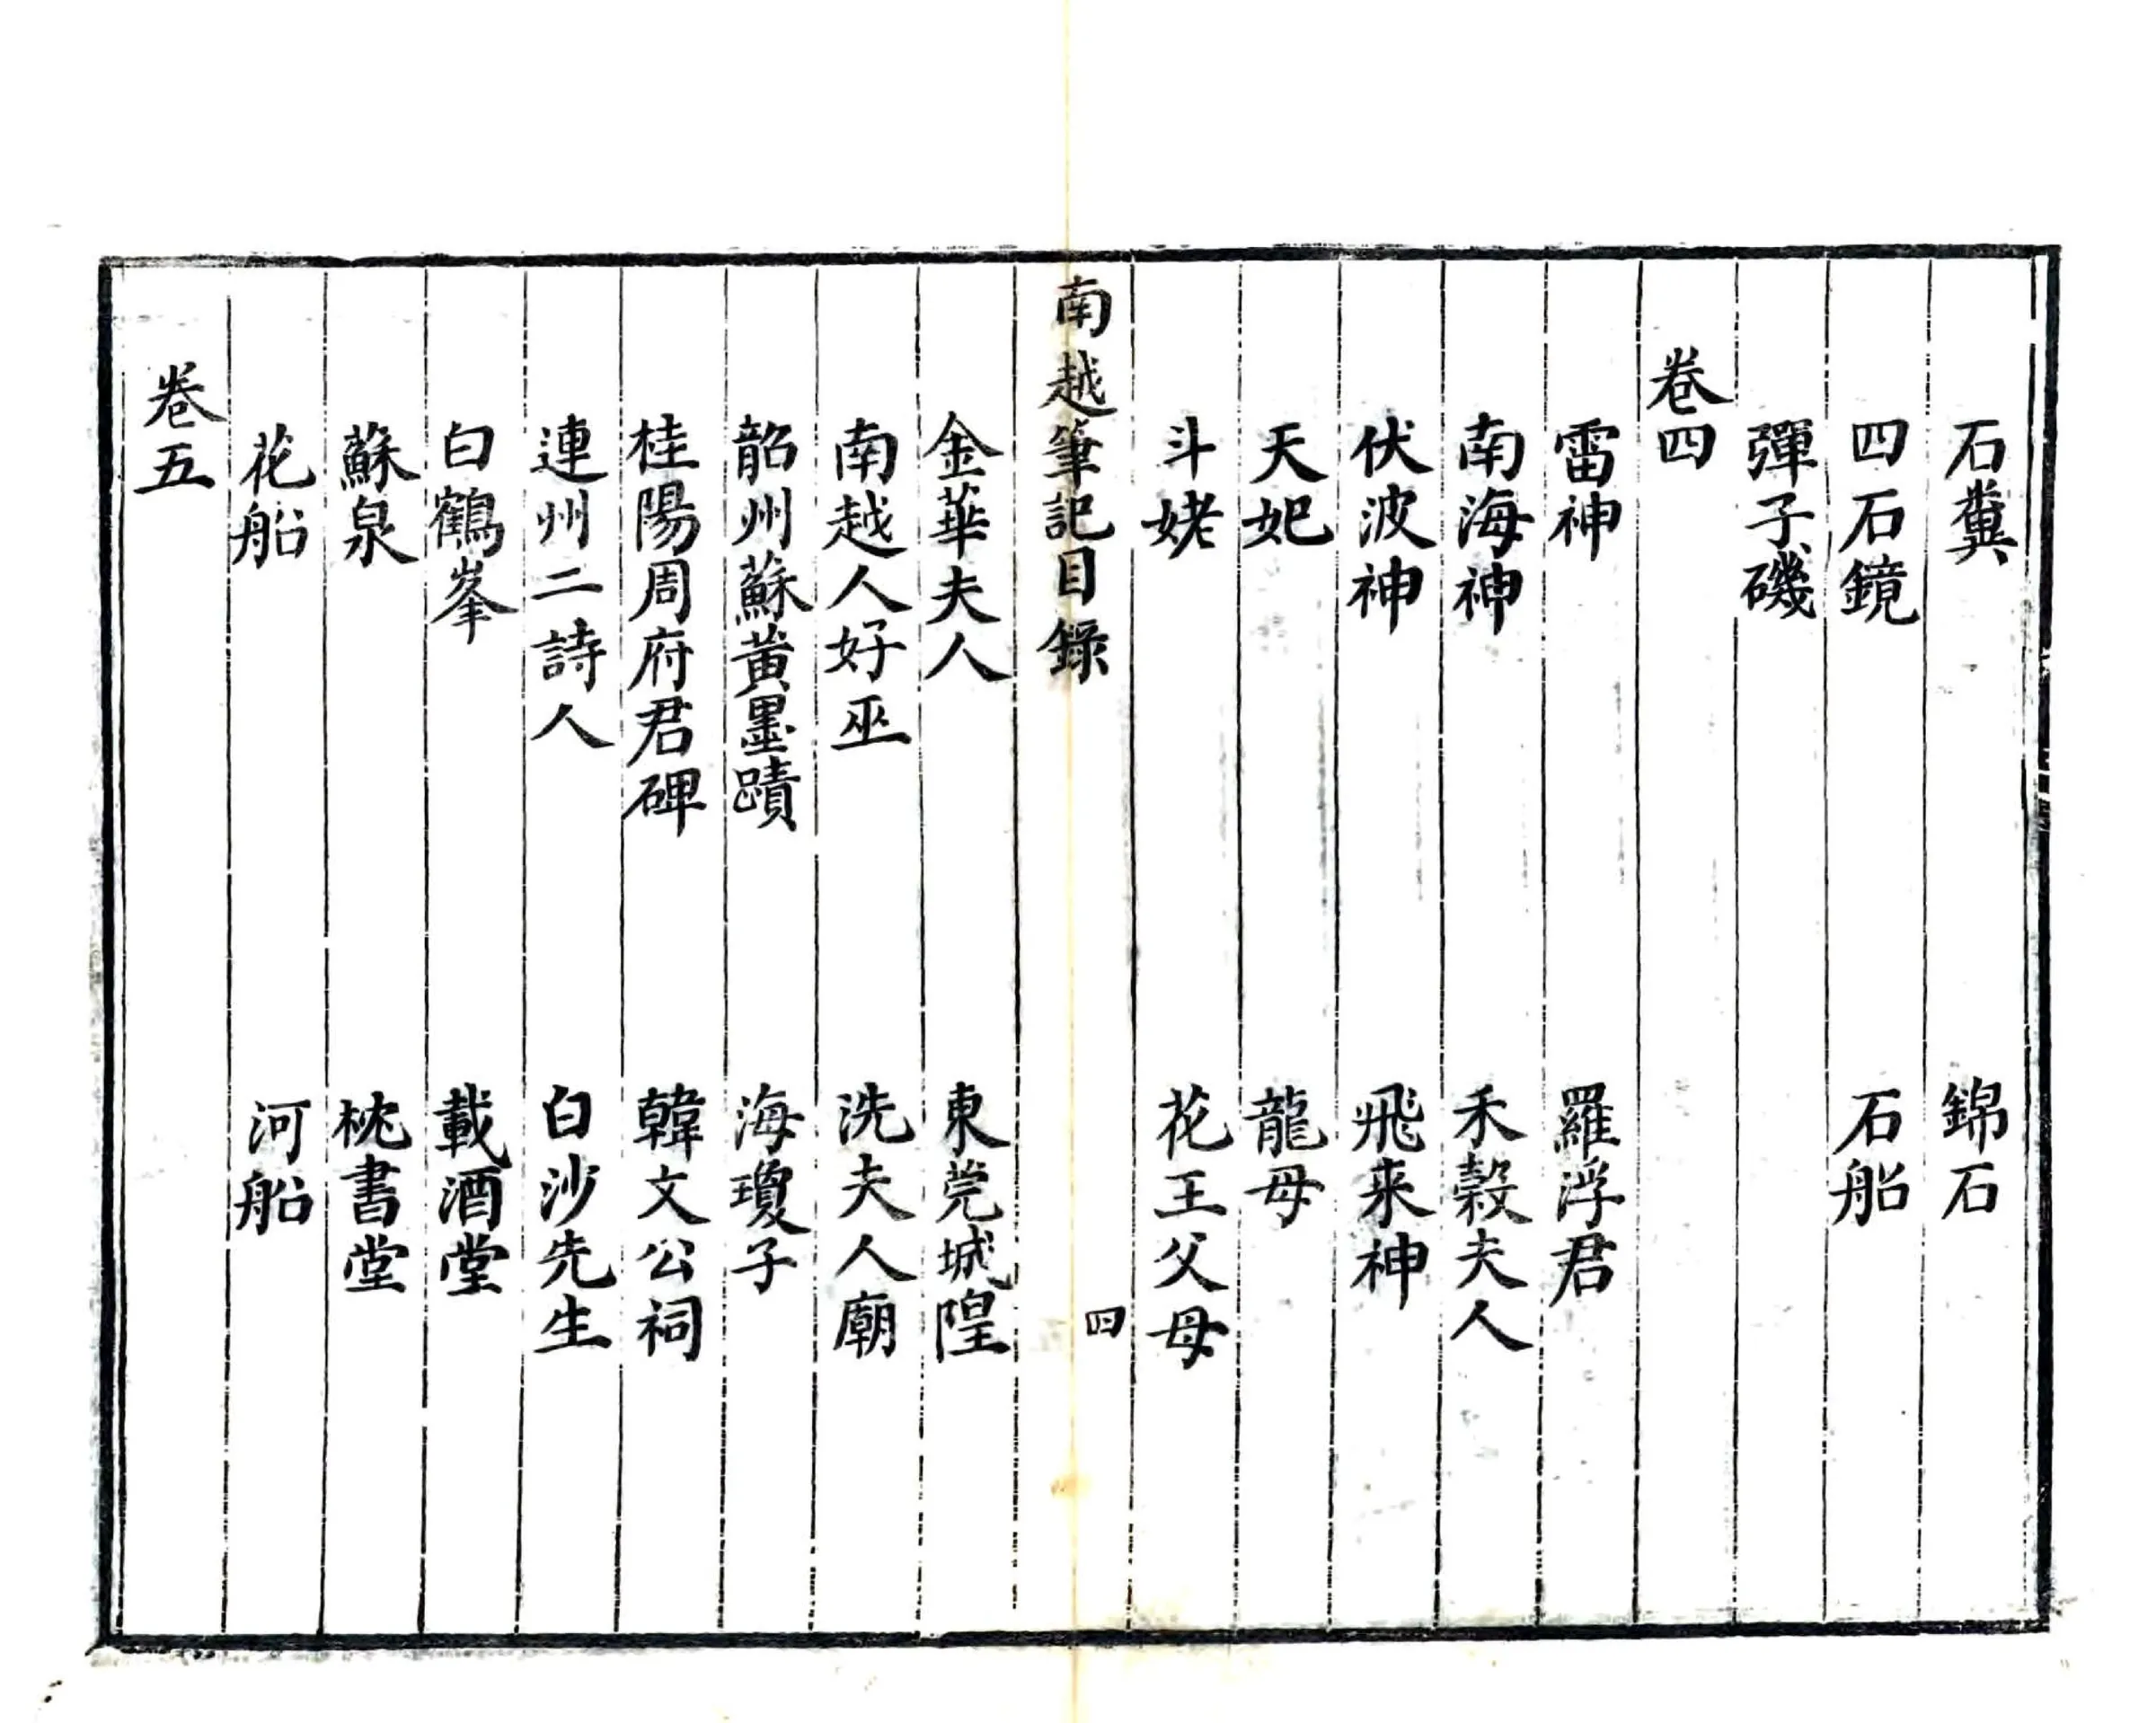 石糞 錦石
四石鏡 石船
彈子磯
卷四
雷神 羅浮君
南海神 禾穀夫人
伏波神 飛来神
天妃 龍母
斗姥 花王父母
南越筆記目錄 四
金華夫人 東莞城隍
南越人好巫 洗夫人廟
韶州蘇黃墨蹟 海瓊子
桂陽周府君碑 韓文公祠
連州二詩人 白沙先生
白鶴峯 載酒堂
蘇泉 枕書堂
花船 河船
卷五